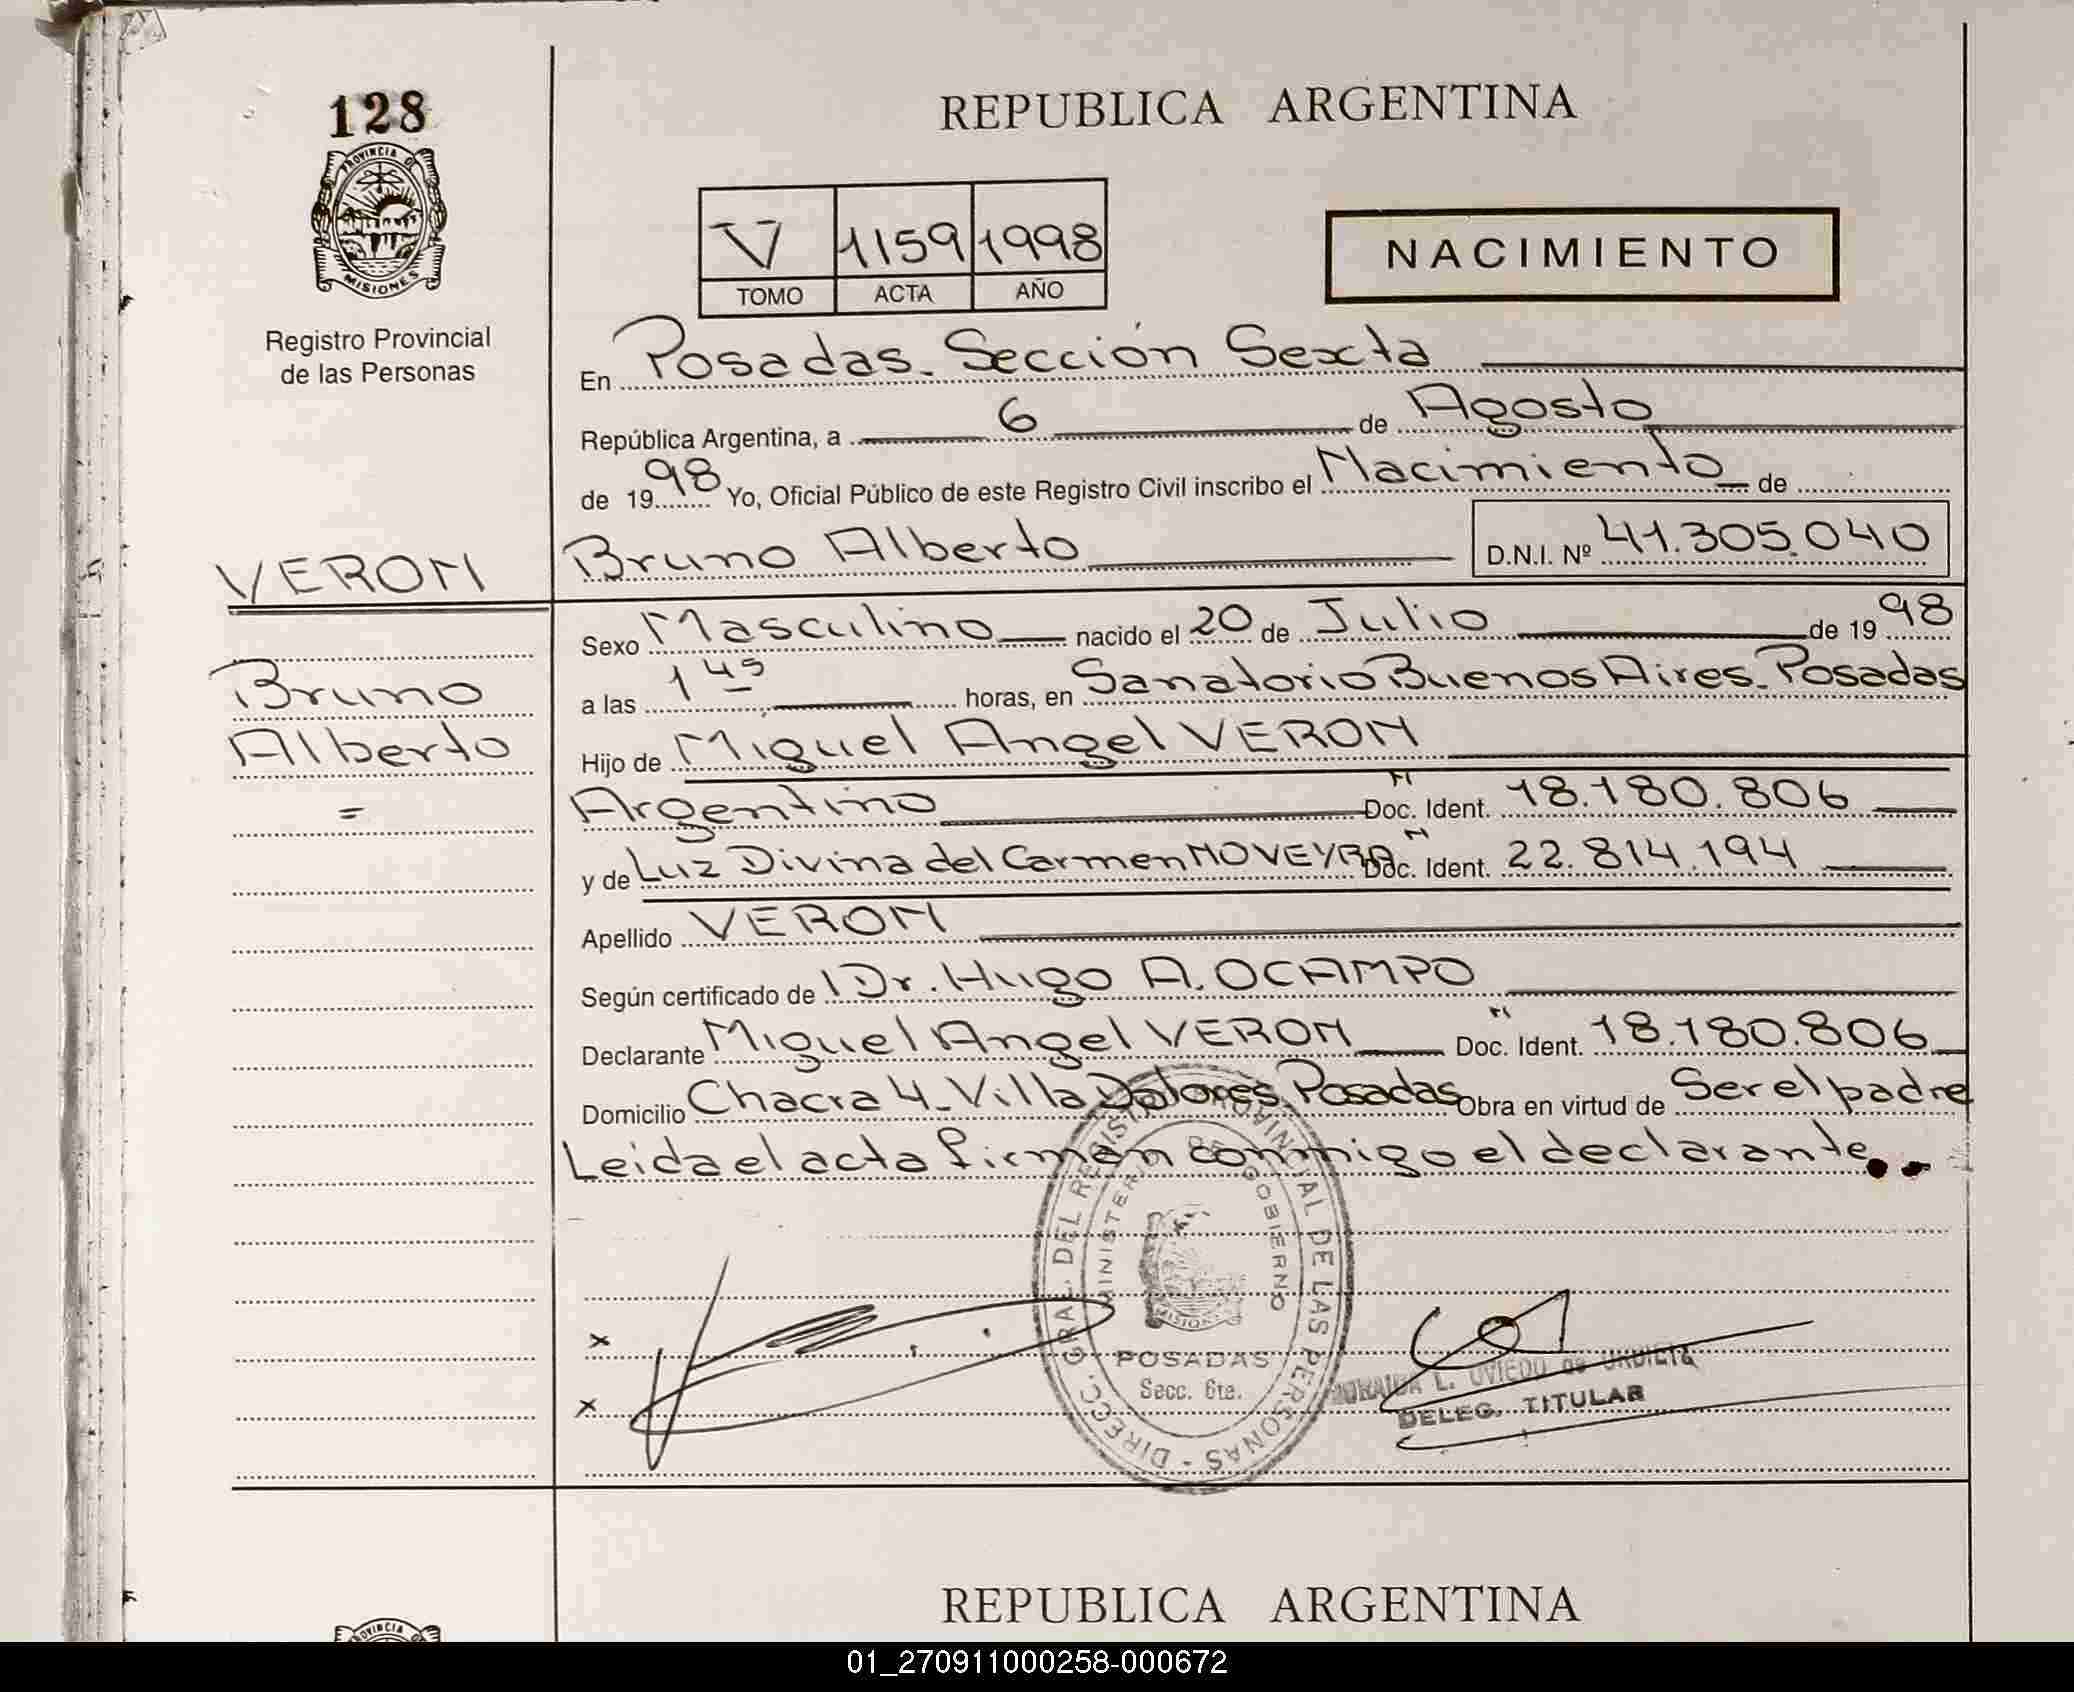 128
PROVINCIA DE
MISIONES
Registro Provincial
de las Personas
REPUBLICA ARGENTINA
V 1159 1998
TOMO ACTA AÑO
NACIMIENTO
En Posadas. Sección Sexta
República Argentina, a 6 de Agosto
de 1998 Yo, Oficial Público de este Registro Civil inscribo el Nacimiento de
VERON
Bruno Alberto D.N.I. Nº 41.305.040
Sexo Masculino nacido el 20 de Julio de 1998
Bruno
a las 1 45 horas, en Sanatorio Buenos Aires. Posadas
Alberto
Hijo de Miguel Angel VERON
=
Argentino Doc. Ident. 18.180.806
y de Luz Divina del Carmen NOVEYRA Doc. Ident. 22.814.194
Apellido VERON
Según certificado de Dr. Hugo A. OCAMPO
Declarante Miguel Angel VERON Doc. Ident. 18.180.806
Domicilio Chacra 4. Villa Dolores. Posadas Obra en virtud de Ser el padre
Leida el acta firman conmigo el declarante..
DIRECC. GRAL. DEL REGISTRO PROVINCIAL DE LAS PERSONAS -
MINISTERIO DE GOBIERNO
MISIONES
POSADAS
Secc. 6ta.
x
x
L. OVIEDO de URDIETA
DELEG. TITULAR
REPUBLICA ARGENTINA
PROVINCIA
01_270911000258-000672